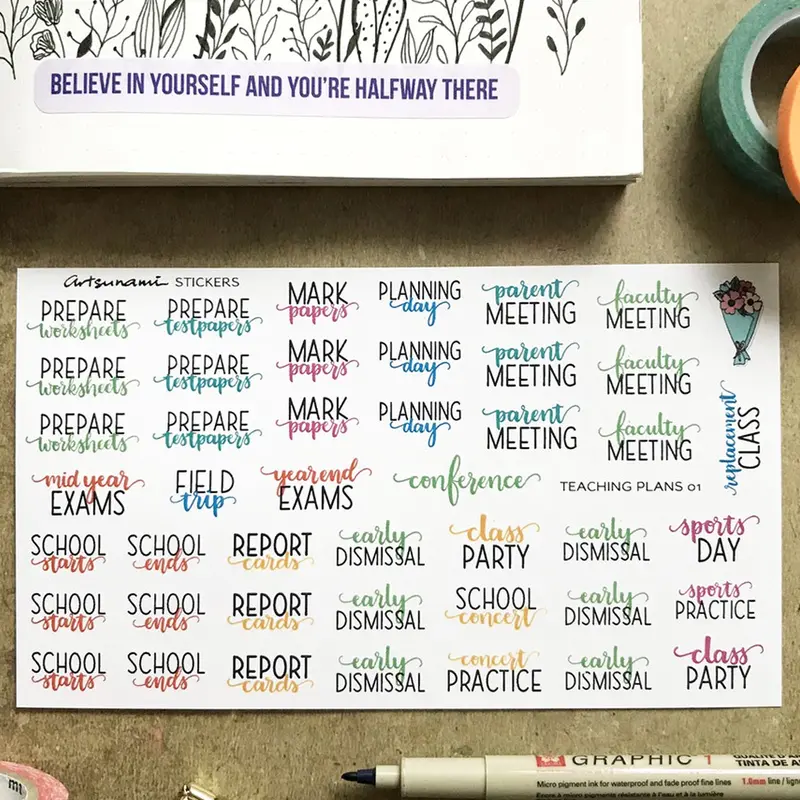 BELIEVE IN YOURSELF AND YOU'RE HALFWAY THERE
Artsunami STICKERS
PREPARE worksheets
PREPARE testpapers
MARK papers
PLANNING day
parent MEETING
faculty MEETING
PREPARE worksheets
PREPARE testpapers
MARK papers
PLANNING day
parent MEETING
faculty MEETING
PREPARE worksheets
PREPARE testpapers
MARK papers
PLANNING day
parent MEETING
faculty MEETING
replacement CLASS
mid year EXAMS
FIELD trip
year end EXAMS
conference
TEACHING PLANS 01
SCHOOL starts
SCHOOL ends
REPORT cards
early DISMISSAL
class PARTY
early DISMISSAL
sports DAY
SCHOOL starts
SCHOOL ends
REPORT cards
early DISMISSAL
SCHOOL concert
early DISMISSAL
sports PRACTICE
SCHOOL starts
SCHOOL ends
REPORT cards
early DISMISSAL
concert PRACTICE
early DISMISSAL
class PARTY
GRAPHIC 1
TINTA DE
Micro pigment ink for waterproof and fade proof fine lines
1.0mm line